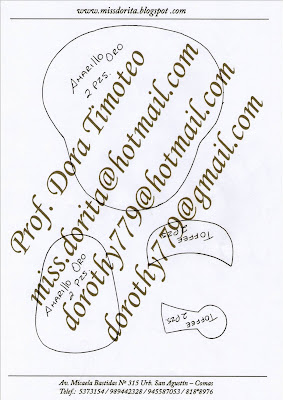 www.missdorita.blogspot.com
AMARILLO ORO
2 PZS.
Prof. Dora Timoteo
miss.dorita@hotmail.com
dorothy779@hotmail.com
dorothy779@gmail.com
TOFFEE
2 PZS.
AMARILLO ORO
2 PZS.
TOFFEE
2 PZS.
Av. Micaela Bastidas Nº 315 Urb. San Agustín - Comas
Telef.: 5373154 / 989442328 / 945587053 / 818*8976